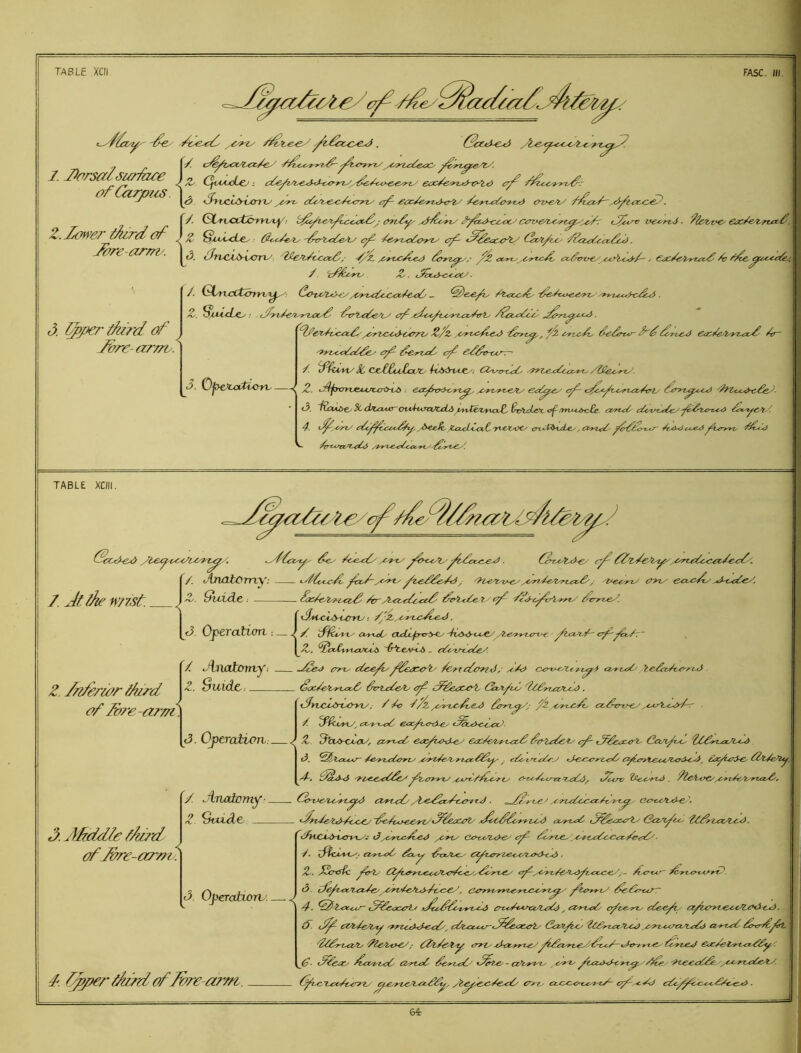 TABLE XCII
FASC. III.
Ligature of the Radial Artery.
May be tied in three places. Cases requiring.
1. Dorsal surface of Carpus.
1. Separate thumb from index finger.
2. Guide: depression between extensors of thumb.
3. Incision in direction of tendons over that space.
2. Lower third of Fore-arm.
1. Anatomy: Superficial; only skin fasciae covering it. Two veins. Nerve external.
2. Guide: Outer border of tendon of Flexor Carpi Radialis.
3. Incision. Vertical; 1½ inches long; ½ an inch above wrist, external to the guide.
1. Skin. 2. Fasciae.
3. Upper third of Fore-arm.
1. Anatomy. Course indicated. Deeply placed between muscles.
2. Guide: Internal border of Supinator Radii Longus.
3. Operation
Vertical incision 2½ inches long, ½ inch below & 6 lines external to middle of bend of elbow.
1. Skin & Cellular tissue; avoid median Vein.
2. Aponeurosis: exposing inner edge of Supinator Longus Muscle.
3. Raise & draw outwards internal border of muscle and divide fibrous layer.
4. If in difficulty, seek radial nerve outside, and follow tissues from this towards median line.
TABLE XCIII.
Ligature of the Ulnar Artery.
Cases requiring. May be tied in four places. Course of Artery indicated.
1. At the wrist.
1. Anatomy: Much fat in pellets, nerve internal, vein on each side.
2. Guide: External to radial border of Pisiform bone.
3. Operation:
Incision: 1½ inches.
1. Skin and adipose tissue, remove part of fat.
2. Palmaris Brevis divide.
2. Inferior third of Fore-arm
1. Anatomy: Lies on deep flexor tendons; its coverings and relations.
2. Guide: External border of Flexor Carpi Ulnaris.
3. Operation:
Incision; 1 to 1½ inches long; ½ inch above wrist
1. Skin, and expose Fascia.
2. Fascia, and expose external border of Flexor Carpi Ulnaris.
3. Draw tendon internally, divide second aponeurosis, expose Artery
4. Pass needle from within outwards, Two Veins. Nerve internal.
3. Middle third of Fore-arm.
1. Anatomy: Coverings and relations. Line indicating course.
2. Guide. Interstice between Flexor Sublimis and Flexor Carpi Ulnaris.
3. Operation.
Incision: 3 inches in course of line indicated.
1. Skin; and lay bare aponeurosis.
2. Look for Aponeurotic line of interspace; how known?
3. Separate interstice, commencing from below.
4. Draw Flexor Sublimis outwards, and open deep aponeurosis.
5. If artery missed, draw Flexor Carpi Ulnaris inwards and look for Ulnar Nerve; Artery on same plane but some lines externally.
6. Flex hand and bend Fore-arm in passing the needle under.
4. Upper third of Fore-arm. Operation generally rejected on account of its difficulties.
64